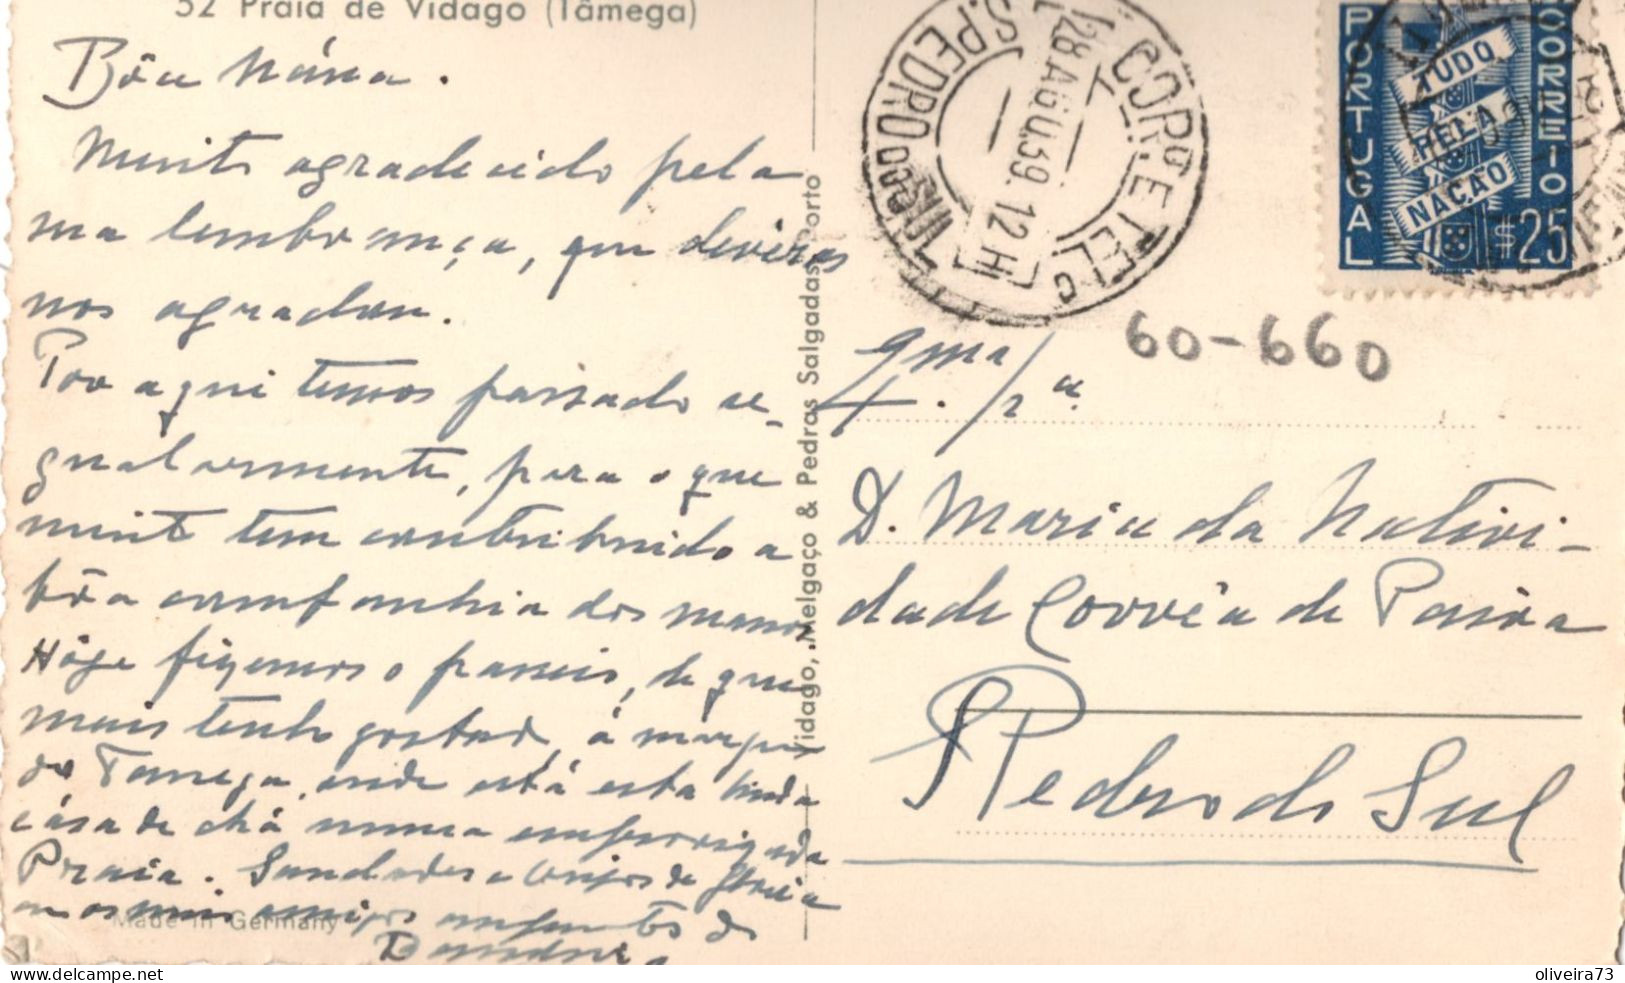 52 Praia de Vidago (Tâmega)
Bôa Nána.
Muito agradecido pela
sua lembrança, que deveras
nos agradou.
Por aqui temos passado re-
gularmente, para o que
muito tem contribuido a
bôa companhia dos manos
Hoje fizemos o passeio, de que
mais tenho gostado, á margem
do Tamega, onde está esta linda
cása de chá numa
Praia. Saudades e beijos da Gloria
e os meus amigos do
Vidago, Melgaço & Pedras Salgadas, Porto
Made in Germany
CORR.E TELEG.
S.PEDRO DO SUL
28 AGO.39.12H
PORTUGAL
CORREIO
TUDO
PELA
NAÇÃO
$25
60-660
Exma Sra
D. Maria da Nativi-
dade Corrêa de Paiva
S Pedro do Sul
oliveira73